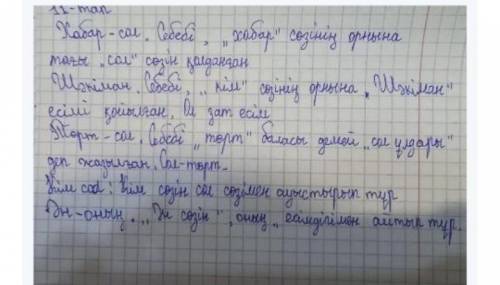 11-тап
Хабар-сол. Себебі, „хабар" сөзінің орнына
тағы „сол" сөзін қолданған
Шәкіман. Себебі, „кім" сөзінің орнына „Шәкіман"
есімі қойылған. Ол зат есім
Төрт-сол. Себебі "төрт" баласы демей „сол ұлдары"
деп жазылған. Сол-төрт.
Кім сол: Кім сөзін сол сөзімен ауыстырып тұр
Ән-оның. „Ән сөзін", оның „ есімдігімен айтып тұр.